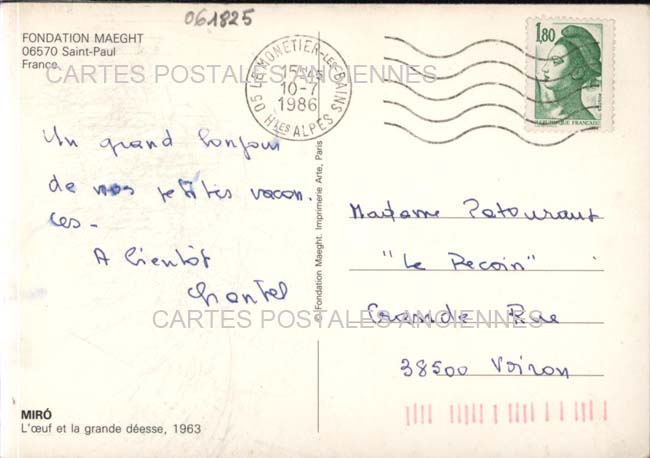 061825
FONDATION MAEGHT
06570 Saint-Paul
France
CARTES POSTALES ANCIENNES
05 LE MONETIER-LES-BAINS
15H45
10-7
1986
Htes ALPES
1,80
REPUBLIQUE FRANCAISE
Un grand bonjour
de nos petites vacan-
ces-
A bientôt
Chantal
© Fondation Maeght. Imprimerie Arte, Paris
Madame
"Le Recoin"
Grande Rue
38500 Voiron
CARTES POSTALES ANCIENNES
MIRÓ
L'œuf et la grande déesse, 1963